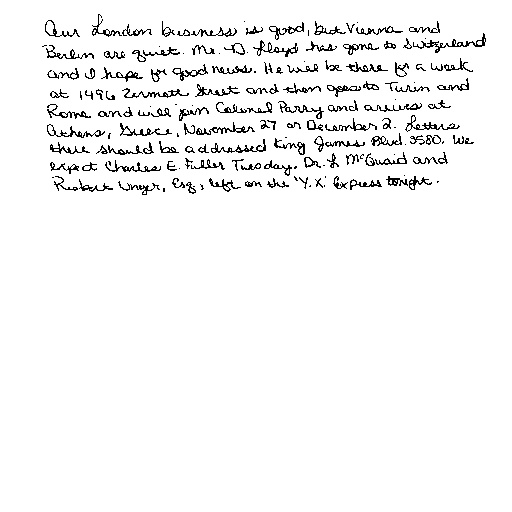 Our London business is good, but Vienna and
Berlin are quiet. Mr. D. Lloyd has gone to Switzerland
and I hope for good news. He will be there for a week
at 1496 Zermott Street and then goes to Turin and
Rome and will join Colonel Parry and arrives at
Athens, Greece, November 27 or December 2. Letters
there should be addressed King James Blvd. 3580. We
expect Charles E. Fuller Tuesday. Dr. L McQuaid and
Robert Unger, Esq., left on the 'Y.X.' Express tonight.